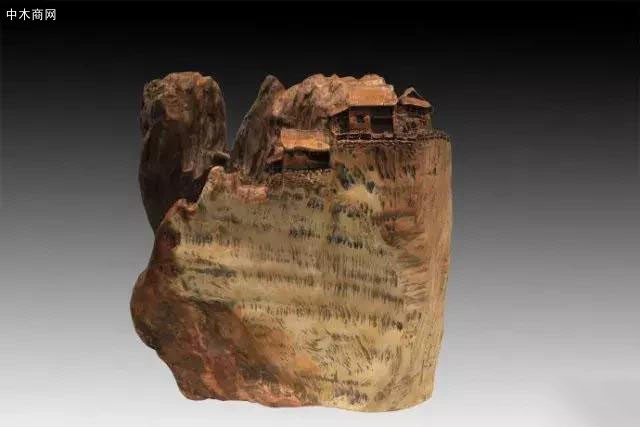 中木商网